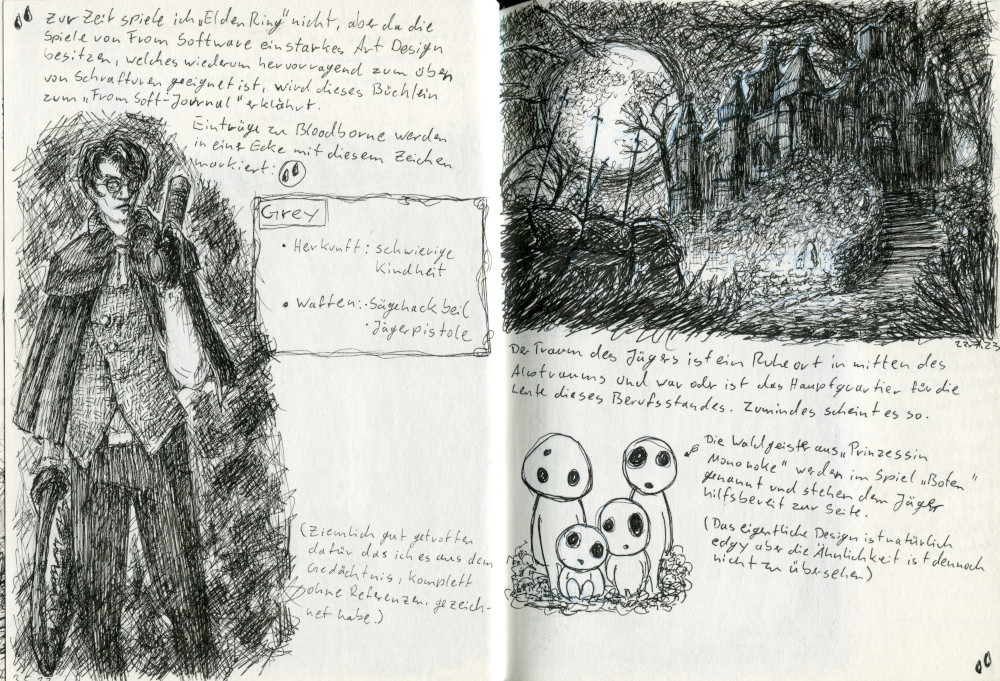 Zur Zeit spiele ich „Elden Ring" nicht, aber da die
Spiele von From Software ein starkes Art Design
besitzen, welches wiederum hervorragend zum üben
von Schrafturen geeignet ist, wird dieses Büchlein
zum „From Soft-Journal" erklährt.
Einträge zu Bloodborne werden
in eine Ecke mit diesem Zeichen
markiert:
Grey
• Herkunft: schwierige
Kindheit
• Waffen: · Sägehackbeil
· Jägerpistole
(Ziemlich gut getroffen
dafür das ich es aus dem
Gedächtnis, komplett
ohne Referenzen, gezeich-
net habe.)
23
Der Traum des Jägers ist ein Ruheort in mitten des
Albtraums und war oder ist das Hauptquartier für die
Leute dieses Berufsstandes. Zumindes scheint es so.
Die Waldgeister aus „Prinzessin
Mononoke" werden im Spiel „Boten"
genannt und stehen dem Jäger
hilfsbereit zur Seite.
(Das eigentliche Design ist natürlich
edgy aber die Ähnlichkeit ist dennoch
nicht zu übersehen)